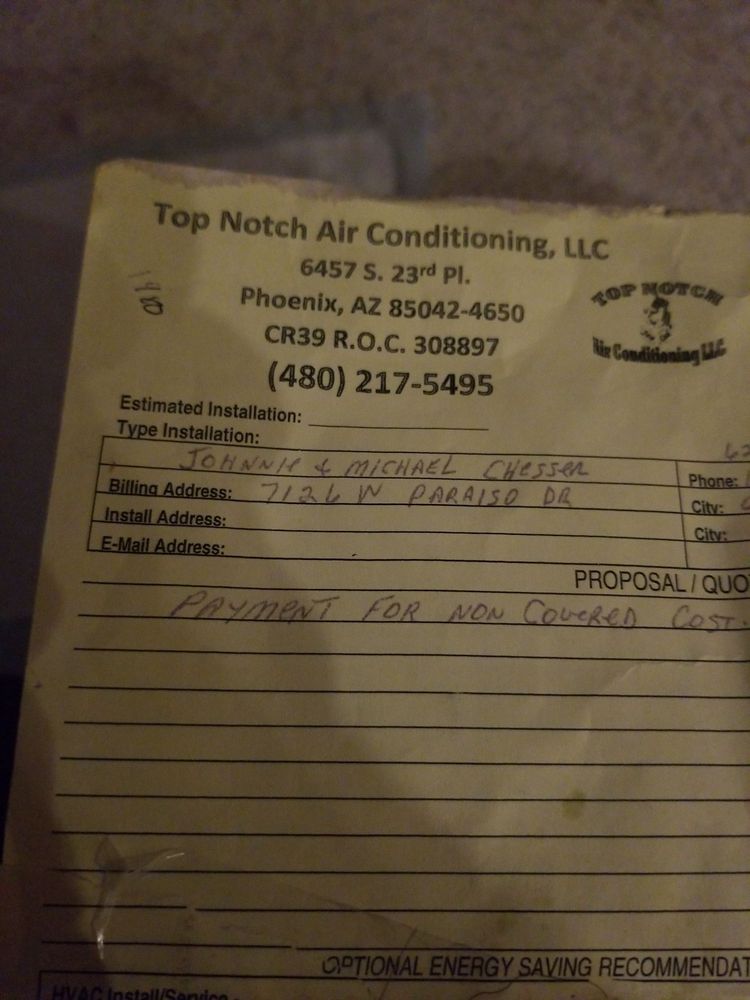 Top Notch Air Conditioning, LLC
6457 S. 23rd Pl.
Phoenix, AZ 85042-4650
CR39 R.O.C. 308897
(480) 217-5495
TOP NOTCH
Air Conditioning LLC
Estimated Installation:
Type Installation:
JOHNNIE & MICHAEL CHESSER
Phone:
Billing Address: 7126 W PARAISO DR
City:
Install Address:
City:
E-Mail Address:
PROPOSAL / QUO
PAYMENT FOR NON COVERED COST.
OPTIONAL ENERGY SAVING RECOMMENDAT
HVAC Install/Service